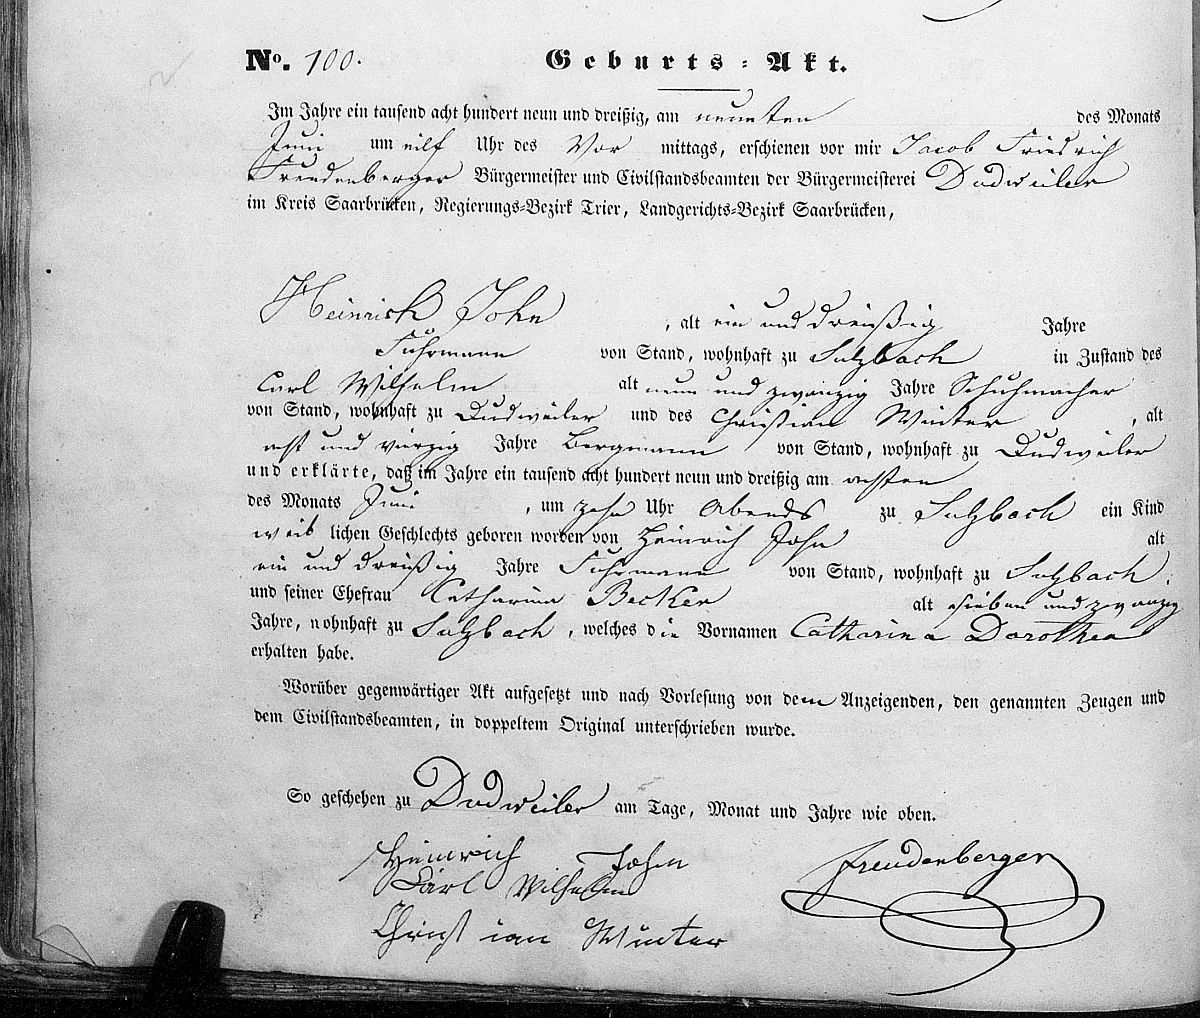 No. 100. Geburts-Akt.
Im Jahre ein tausend acht hundert neun und dreißig, am neunten des Monats
Juni um eilf Uhr des Vor mittags, erschienen vor mir Jacob Friedrich
Freudenberger Bürgermeister und Civilstandsbeamten der Bürgermeisterei Dudweiler
im Kreis Saarbrücken, Regierungs-Bezirk Trier, Landgerichts-Bezirk Saarbrücken,
Heinrich John, alt ein und dreißig Jahre
Fuhrmann von Stand, wohnhaft zu Sulzbach in Zustand des
Carl Wilhelm alt neun und zwanzig Jahre Schuhmacher
von Stand, wohnhaft zu Dudweiler und des Christian Winter, alt
acht und vierzig Jahre Bergmann von Stand, wohnhaft zu Dudweiler
und erklärte, daß im Jahre ein tausend acht hundert neun und dreißig am achten
des Monats Juni, um zehn Uhr Abends zu Sulzbach ein Kind
weib lichen Geschlechts geboren worden von Heinrich John alt
ein und dreißig Jahre Fuhrmann von Stand, wohnhaft zu Sulzbach,
und seiner Ehefrau Catharina Becker alt sieben und zwanzig
Jahre, wohnhaft zu Sulzbach, welches die Vornamen Catharina Dorothea
erhalten habe.
Worüber gegenwärtiger Akt aufgesetzt und nach Vorlesung von dem Anzeigenden, den genannten Zeugen und
dem Civilstandsbeamten, in doppeltem Original unterschrieben wurde.
So geschehen zu Dudweiler am Tage, Monat und Jahre wie oben.
Heinrich John Freudenberger
Carl Wilhelm
Christian Winter